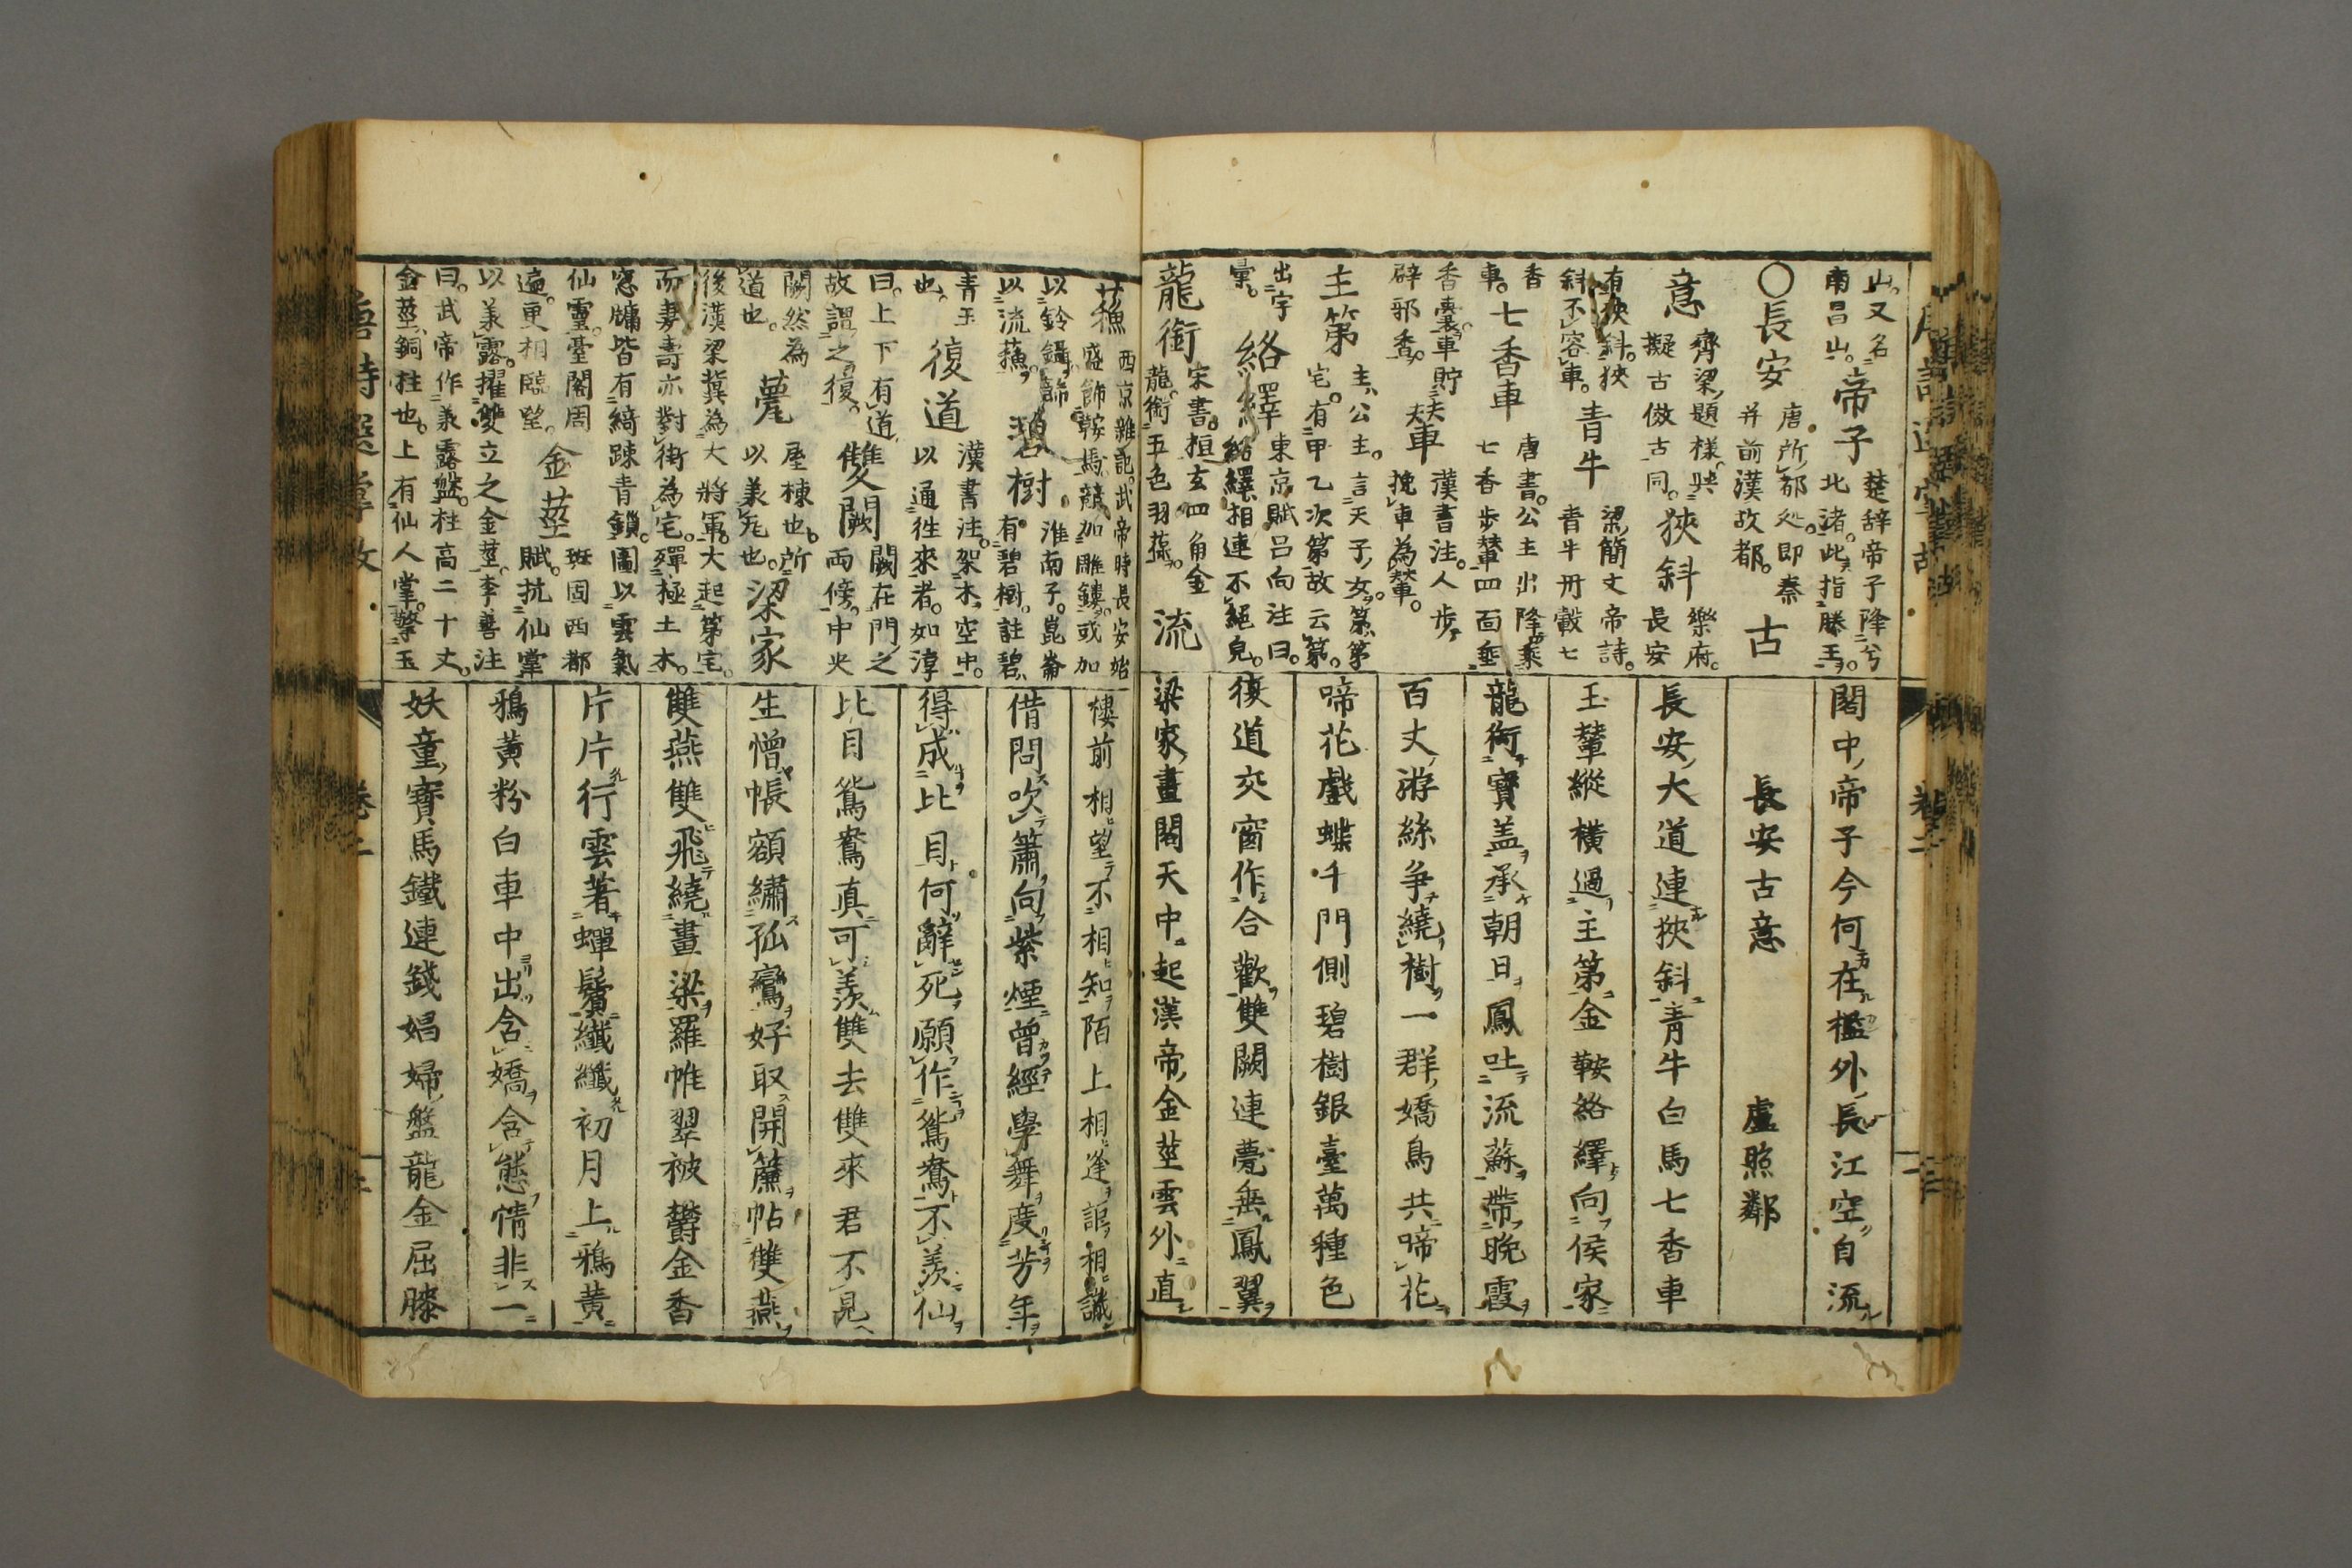 山又名
南昌山
帝子
楚辞帝子降兮
北渚此指滕王
○長安
唐所都処即秦
并前漢故都
古
意
齊梁題樣
擬古倣古同
狹斜
樂府
長安
有狹斜狹
斜不容車
青牛
梁簡文帝詩
青牛丹轂七
香
車
七香車
唐書公主出降乘
七香歩輦四面
香囊車貯
辟邪香
輦
漢書注人歩
挽車為輦
主第
主公主言天子女第
宅有甲乙次第故云第
出字
彙
絡繹
東京賦呂向注曰
絡繹相連不絕皃
龍銜
宋書桓玄四角金
龍銜五色羽葆
流
閣中帝子今何在檻外長江空自流
長安古意 盧照鄰
長安大道連狹斜青牛白馬七香車
玉輦縱橫過主第金鞍絡繹向侯家
龍銜寶盖承朝日鳳吐流蘇帶晚霞
百丈游絲争繞樹一群嬌鳥共啼花
啼花戲蝶千門側碧樹銀臺萬種色
復道交窗作合歡雙闕連甍垂鳳翼
梁家畫閣天中起漢帝金莖雲外直
蘓
西京雜記武帝時長安始
盛飾鞍馬競加雕鏤或加
以鈴鑷飾
以流蘓
碧樹
淮南子崑崙
有碧樹註碧
青玉
也
復道
漢書注架木空中
以通徃來者如淳
曰上下有道
故謂之復
雙闕
闕在門之
兩傍中央
闕然為
道也
甍
屋棟也所
以義死也
梁家
後漢梁冀為大將軍大起第宅
而妻壽亦對街為宅殫極土木
窓牖皆有綺疎青鎖圖以雲氣
仙靈臺閣周
遍更相臨望
金莖
班固西都
賦抗仙掌
以羕露擢雙立之金莖李善注
曰武帝作羕露盤柱高二十丈
金莖銅柱也上有仙人掌擎玉
樓前相望不相知陌上相逢詎相識
借問吹簫向紫煙曾經學舞度芳年
得成比目何辭死願作鴛鴦不羨仙
比目鴛鴦真可羨雙去雙來君不見
生憎帳額繡孤鸞好取開簾帖雙燕
雙燕雙飛繞畫梁羅帷翠被欝金香
片片行雲著蟬鬢纖纖初月上鴉黃
鴉黃粉白車中出含嬌含態情非一
妖童寶馬鐵連錢娼婦盤龍金屈膝
唐詩選掌故
卷二